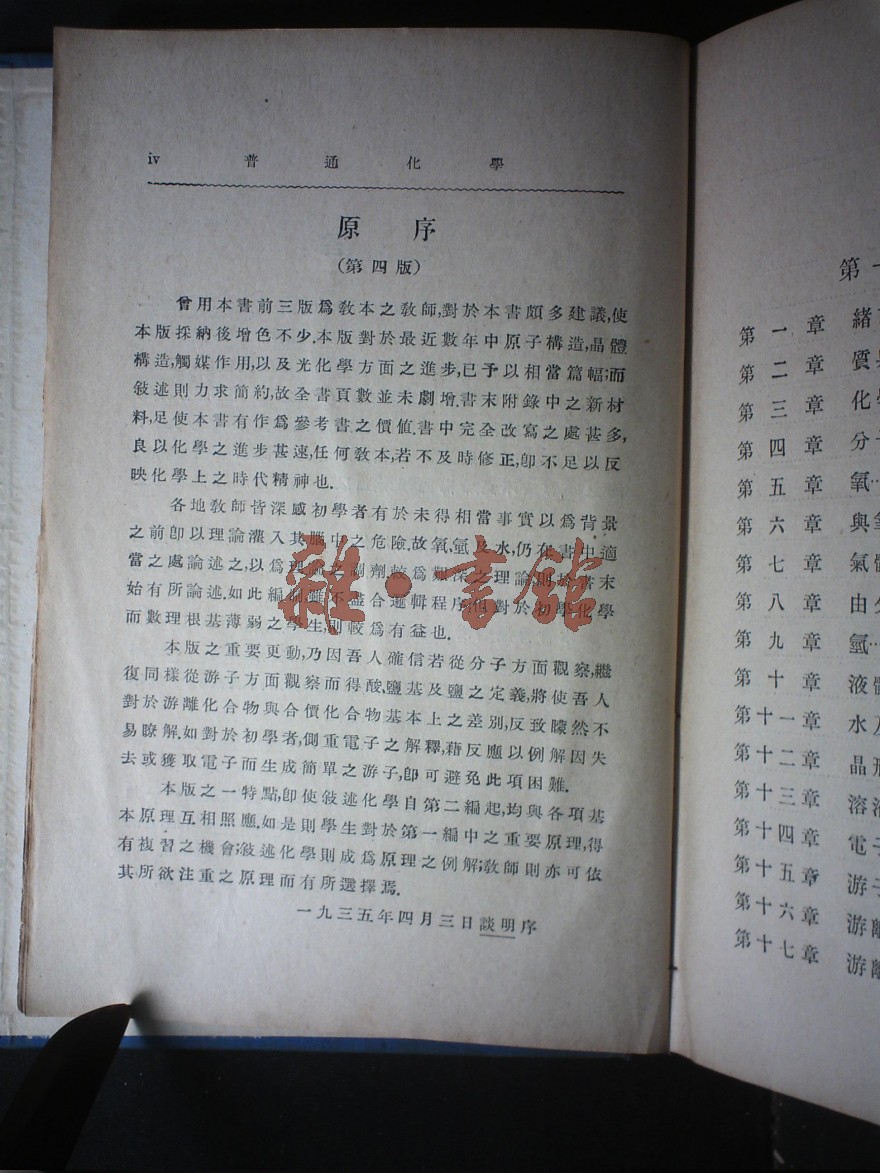 iv 普通化學
原序
(第四版)
曾用本書前三版爲敎本之敎師,對於本書頗多建議,使
本版採納後增色不少.本版對於最近數年中原子構造,晶體
構造,觸媒作用,以及光化學方面之進步,已予以相當篇幅;而
敍述則力求簡約,故全書頁數並未劇增.書末附錄中之新材
料,足使本書有作爲參考書之價値.書中完全改寫之處甚多,
良以化學之進步甚速,任何敎本,若不及時修正,卽不足以反
映化學上之時代精神也.
各地敎師皆深感初學者有於未得相當事實以爲背景
之前卽以理論灌入其腦中之危險,故氧,氫及水,仍在書中適
當之處論述之,以爲理論之調劑,較爲艱深之理論,則於書末
始有所論述.如此編制,雖不盡合邏輯程序,但對於初學化學
而數理根基薄弱之學生,則較爲有益也.
本版之重要更動,乃因吾人確信若從分子方面觀察,繼
復同樣從游子方面觀察而得酸,鹽基及鹽之定義,將使吾人
對於游離化合物與合價化合物基本上之差別,反致矇然不
易瞭解.如對於初學者,側重電子之解釋,藉反應以例解因失
去或獲取電子而生成簡單之游子,卽可避免此項困難.
本版之一特點,卽使敍述化學自第二編起,均與各項基
本原理互相照應.如是則學生對於第一編中之重要原理,得
有複習之機會;敍述化學則成爲原理之例解;敎師則亦可依
其所欲注重之原理而有所選擇焉.
一九三五年四月三日談明序
雜·書館
第一
第一章 緒
第二章 質
第三章 化
第四章 分子
第五章 氧
第六章 與
第七章 氣體
第八章 由
第九章 氫
第十章 液體
第十一章 水
第十二章 晶形
第十三章 溶
第十四章 電子
第十五章 游
第十六章 游離
第十七章 游離